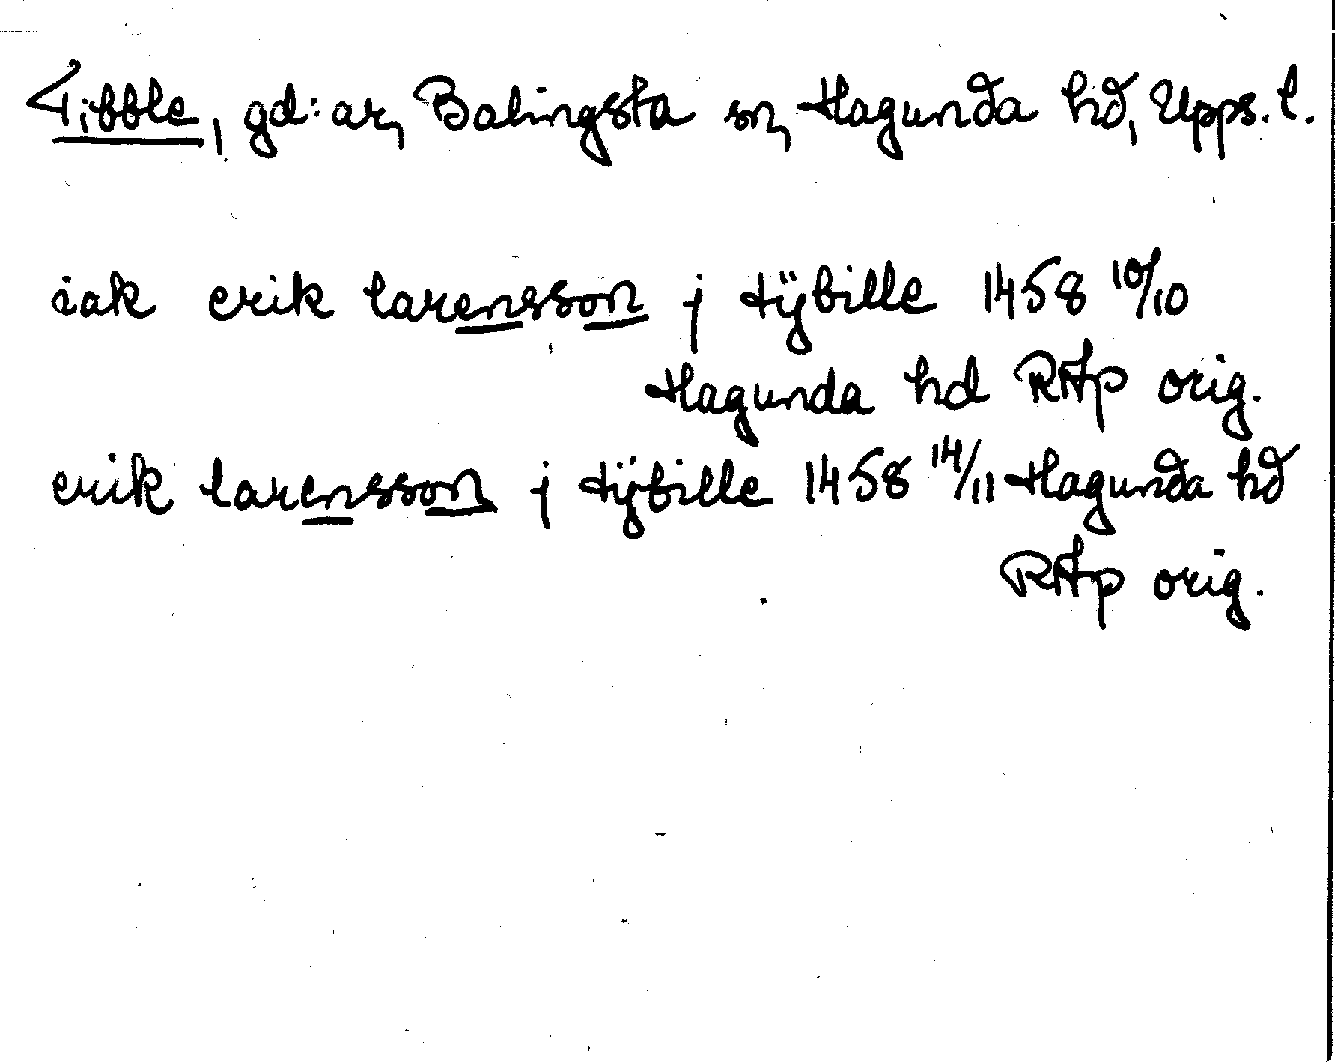 Tibble, gd:ar, Balingsta sn, Hagunda hd, Upps. l.
iak erik larensson j tÿbille 1458 10/10
Hagunda hd RAp orig.
erik larensson j tÿbille 1458 14/11 Hagunda hd
RAp orig.